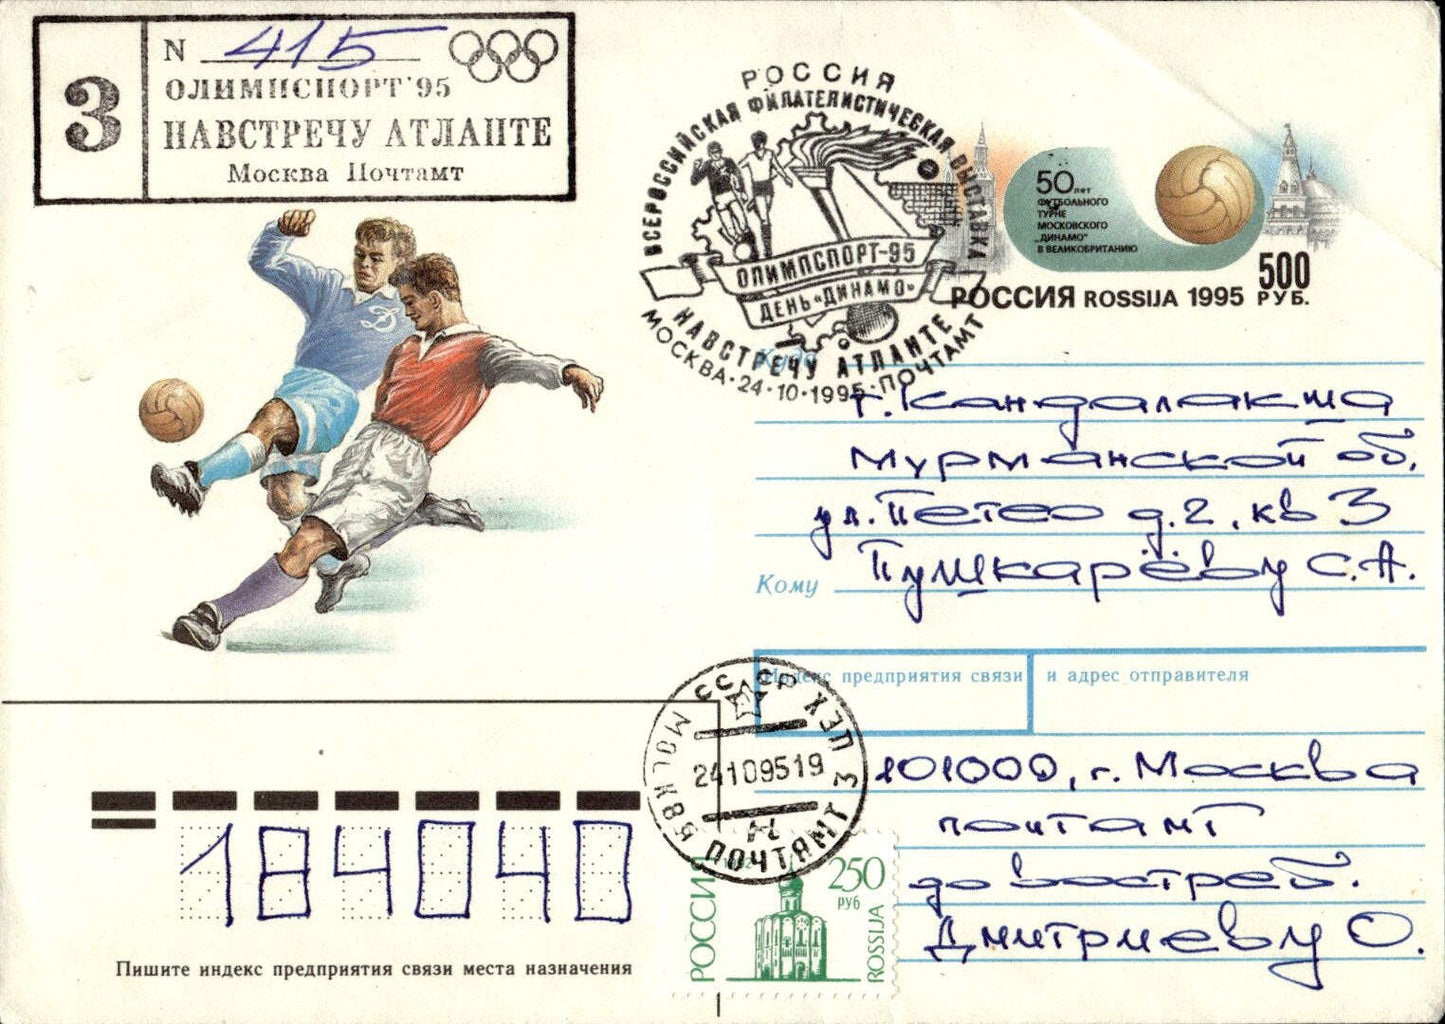 3
N 415
ОЛИМПСПОРТ'95
НАВСТРЕЧУ АТЛАНТЕ
Москва Почтамт
РОССИЯ
ВСЕРОССИЙСКАЯ ФИЛАТЕЛИСТИЧЕСКАЯ ВЫСТАВКА
ОЛИМПСПОРТ-95
ДЕНЬ «ДИНАМО»
НАВСТРЕЧУ АТЛАНТЕ
МОСКВА·24·10·1995·ПОЧТАМТ
50 лет
ФУТБОЛЬНОГО
ТУРНЕ
МОСКОВСКОГО
„ДИНАМО"
В ВЕЛИКОБРИТАНИЮ
500
РУБ.
РОССИЯ ROSSIJA 1995
Д
Куда
г. Кандалакша
Мурманской об.
ул. Петео д. 2, кв 3
Кому Пушкарёву С.А.
Индекс предприятия связи и адрес отправителя
101000, г. Москва
почтамт
до востреб.
Дмитриеву О.
СССР
МОСКВА
24109519
ПОЧТАМТ 3
184040
Пишите индекс предприятия связи места назначения
РОССИЯ
250
РУБ
ROSSIJA